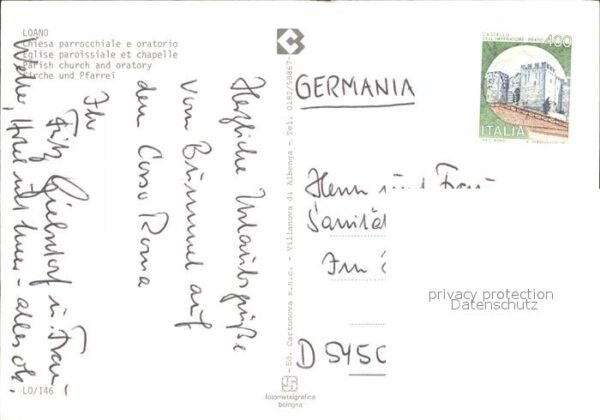 LOANO
Chiesa parrocchiale e oratorio
Eglise paroissiale et chapelle
Parish church and oratory
Kirche und Pfarrei
Herzliche Urlaubsgrüße
vom Bummel auf
dem Corso Roma
Ihr
Fritz in Frau
Wetter, Hotel und Meer - alles ok.
LO/146
- Ed. Cartonova s.n.c. - Villanova di Albenga - Tel. 0182/58867-
fotometalgrafica
bologna
CASTELLO
DELL'IMPERATORE - PRATO
400
ITALIA
GERMANIA
Herrn und Frau
Sanität
Im
D 5450
privacy protection
Datenschutz